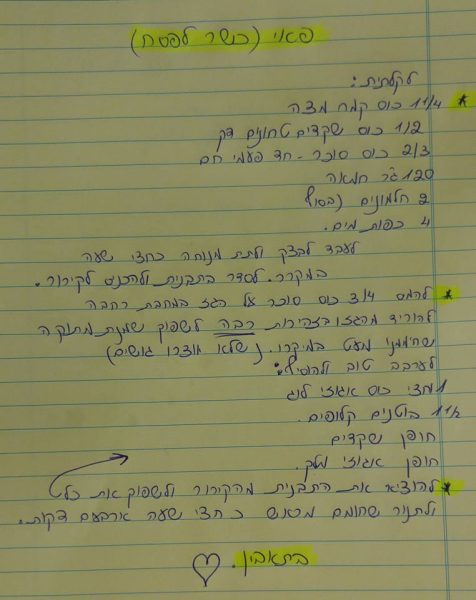 פאי (כשר לפסח)
לקלתית:
* 1 1/4 כוס קמח מצה
1/2 כוס שקדים טחונים דק
2/3 כוס סוכר - חד פעמי חם
120 גר חמאה
2 חלמונים (בסוף
4 כפות מים.
לעבד לבצק ולתת מנוחה כחצי שעה
במקרר. לסדר בתבנית ולהכנס לקירור.
* להמס 3/4 כוס סוכר על הגז במחבת רחבה
להוריד מהגז ובזהירות רבה לשפוק שמנת מתוקה
שחיממנו מעט במיקרו. (שלא יווצרו גושים)
לערבב טוב ולהוסיף:
1 וחצי כוס אגוזי לוג
1 1/2 בוטנים קלופים.
חופן שקדים
חופן אגוזי מלך.
* להוציא את התבנית מהקירור ולשפוק את כל
ולתנור שחומם מראש כ חצי שעה ארבעים דקות.
בתאבון.